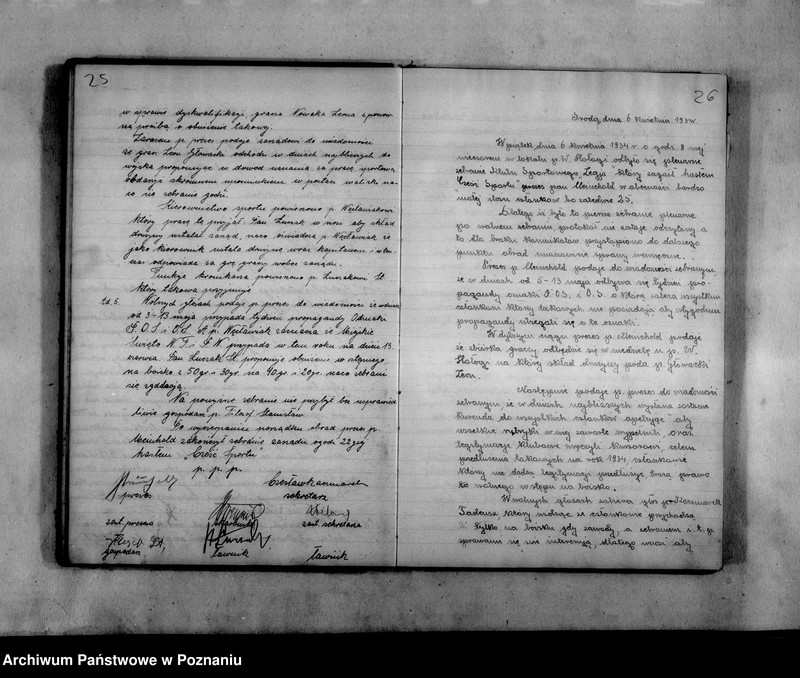 25
w sprawie dyskwalifikacji gracza Nowaka Leona z powodu
na prośbę o obniżenie takowej.
Zarazem p. prezes podaje zarządowi do wiadomości
że gracz Leon Głowacki odchodzi w dniach najbliższych do
wojska proponując w dowód uznania za pracę sportową
obdarzyć skromnem upominkiem w postaci walizki na
co się zebranie godzi.
Kierownictwo sportu powierzono p. Węclawiakowi
który pracę tę przyjął. Pan Łuczak w nosi aby skład
drużyny ustalał zarząd, naco oświadcza p. Węclawiak że
jako kierownik ustala drużynę wraz kapitanem i w tem
odpowiada za grę graczy wobec zarządu.
Funkcję kronikarza powierzono p. Łuczakowi St.
który takową przyjmuje.
t.d. 5. Wolnych głosach podaje p. prezes do wiadomości że w dniach
od 3-13 maja przypada tydzień propagandy Odznaki
P.O.S. i O.S. A p. Węclawiak zaznacza że Miejskie
Święto W.F. i P.W. przypada w tem roku na dzień 13.
czerwca. Pan Łuczak St. proponuje obniżenie wstępnego
na boisko z 50 gr. i 30 gr. na 40 gr. i 20 gr. naco zebrani
się zgadzają.
Na powyższe zebranie nie przybył bez usprawied
liwie gospodarz p. Filas Stanisław.
Po wyczerpaniu porządku obrad prezes p.
Meinhold zakończył zebranie zarządu o godz. 22 giej
hasłem "Cześć Sportu"
p. p. p.
Czesław Kaczmarek
prezes sekretarz
zast. prezesa skarbnik zast. sekretarza
gospodarz ławnik ławnik
26
Środa, dnia 6 kwietnia 1934r.
W piątek, dnia 6 kwietnia 1934 r. o godz. 8 mej
wieczorem w lokalu p. W. Hałasy odbyło się plenarne
zebranie Klubu Sportowego Legja który zagaił hasłem
Cześć Sportu prezes pan Meinhold w obecności bardzo
małej ilości członków bo zaledwie 25.
Dlatego iż było to pierwsze zebranie plenarne
po walnem zebraniu, protokół nie zostaje odczytany a
to dla braku komunikatów przystąpiono do dalszego
punktu obrad mianowicie sprawy wewnętrzne.
Prezes p. Meinhold podaje do wiadomości zebranym,
że w dniach od 5-13 maja odbywa się tydzień pro-
pagandy oznaki P.O.S. i O.S. o którą zaleca wszystkim
członkom którzy takowych nie posiadają aby w tygodniu
propagandy ubiegali się o te oznaki.
W dalszym ciągu prezes p. Meinhold podaje
że zbiórka graczy odbędzie się w niedzielę u p. W.
Hałasy na który skład drużyny poda p. Głowacki
Leon.
Następnie podaje p. prezes do wiadomości
zebranym, że w dniach najbliższych wysłana zostanie
kurenda do wszystkich członków apelując aby
wszelkie rubryki w niej zawarte wypełnili oraz
legitymacje klubowe wręczyli kursorowi, celem
przedłużenia takowych na rok 1934. Członkowie
którzy nie dadzą legitymacji przedłużyć tracą prawo
do wolnego wstępu na boisko.
W wolnych głosach zabiera głos p. Kaczmarek
Tadeusz, który widząc że członkowie przychodzą
tylko na boisko gdy zawody, a zebraniem i t. p.
sprawami się nie interesują, dlatego wnosi aby
Archiwum Państwowe w Poznaniu